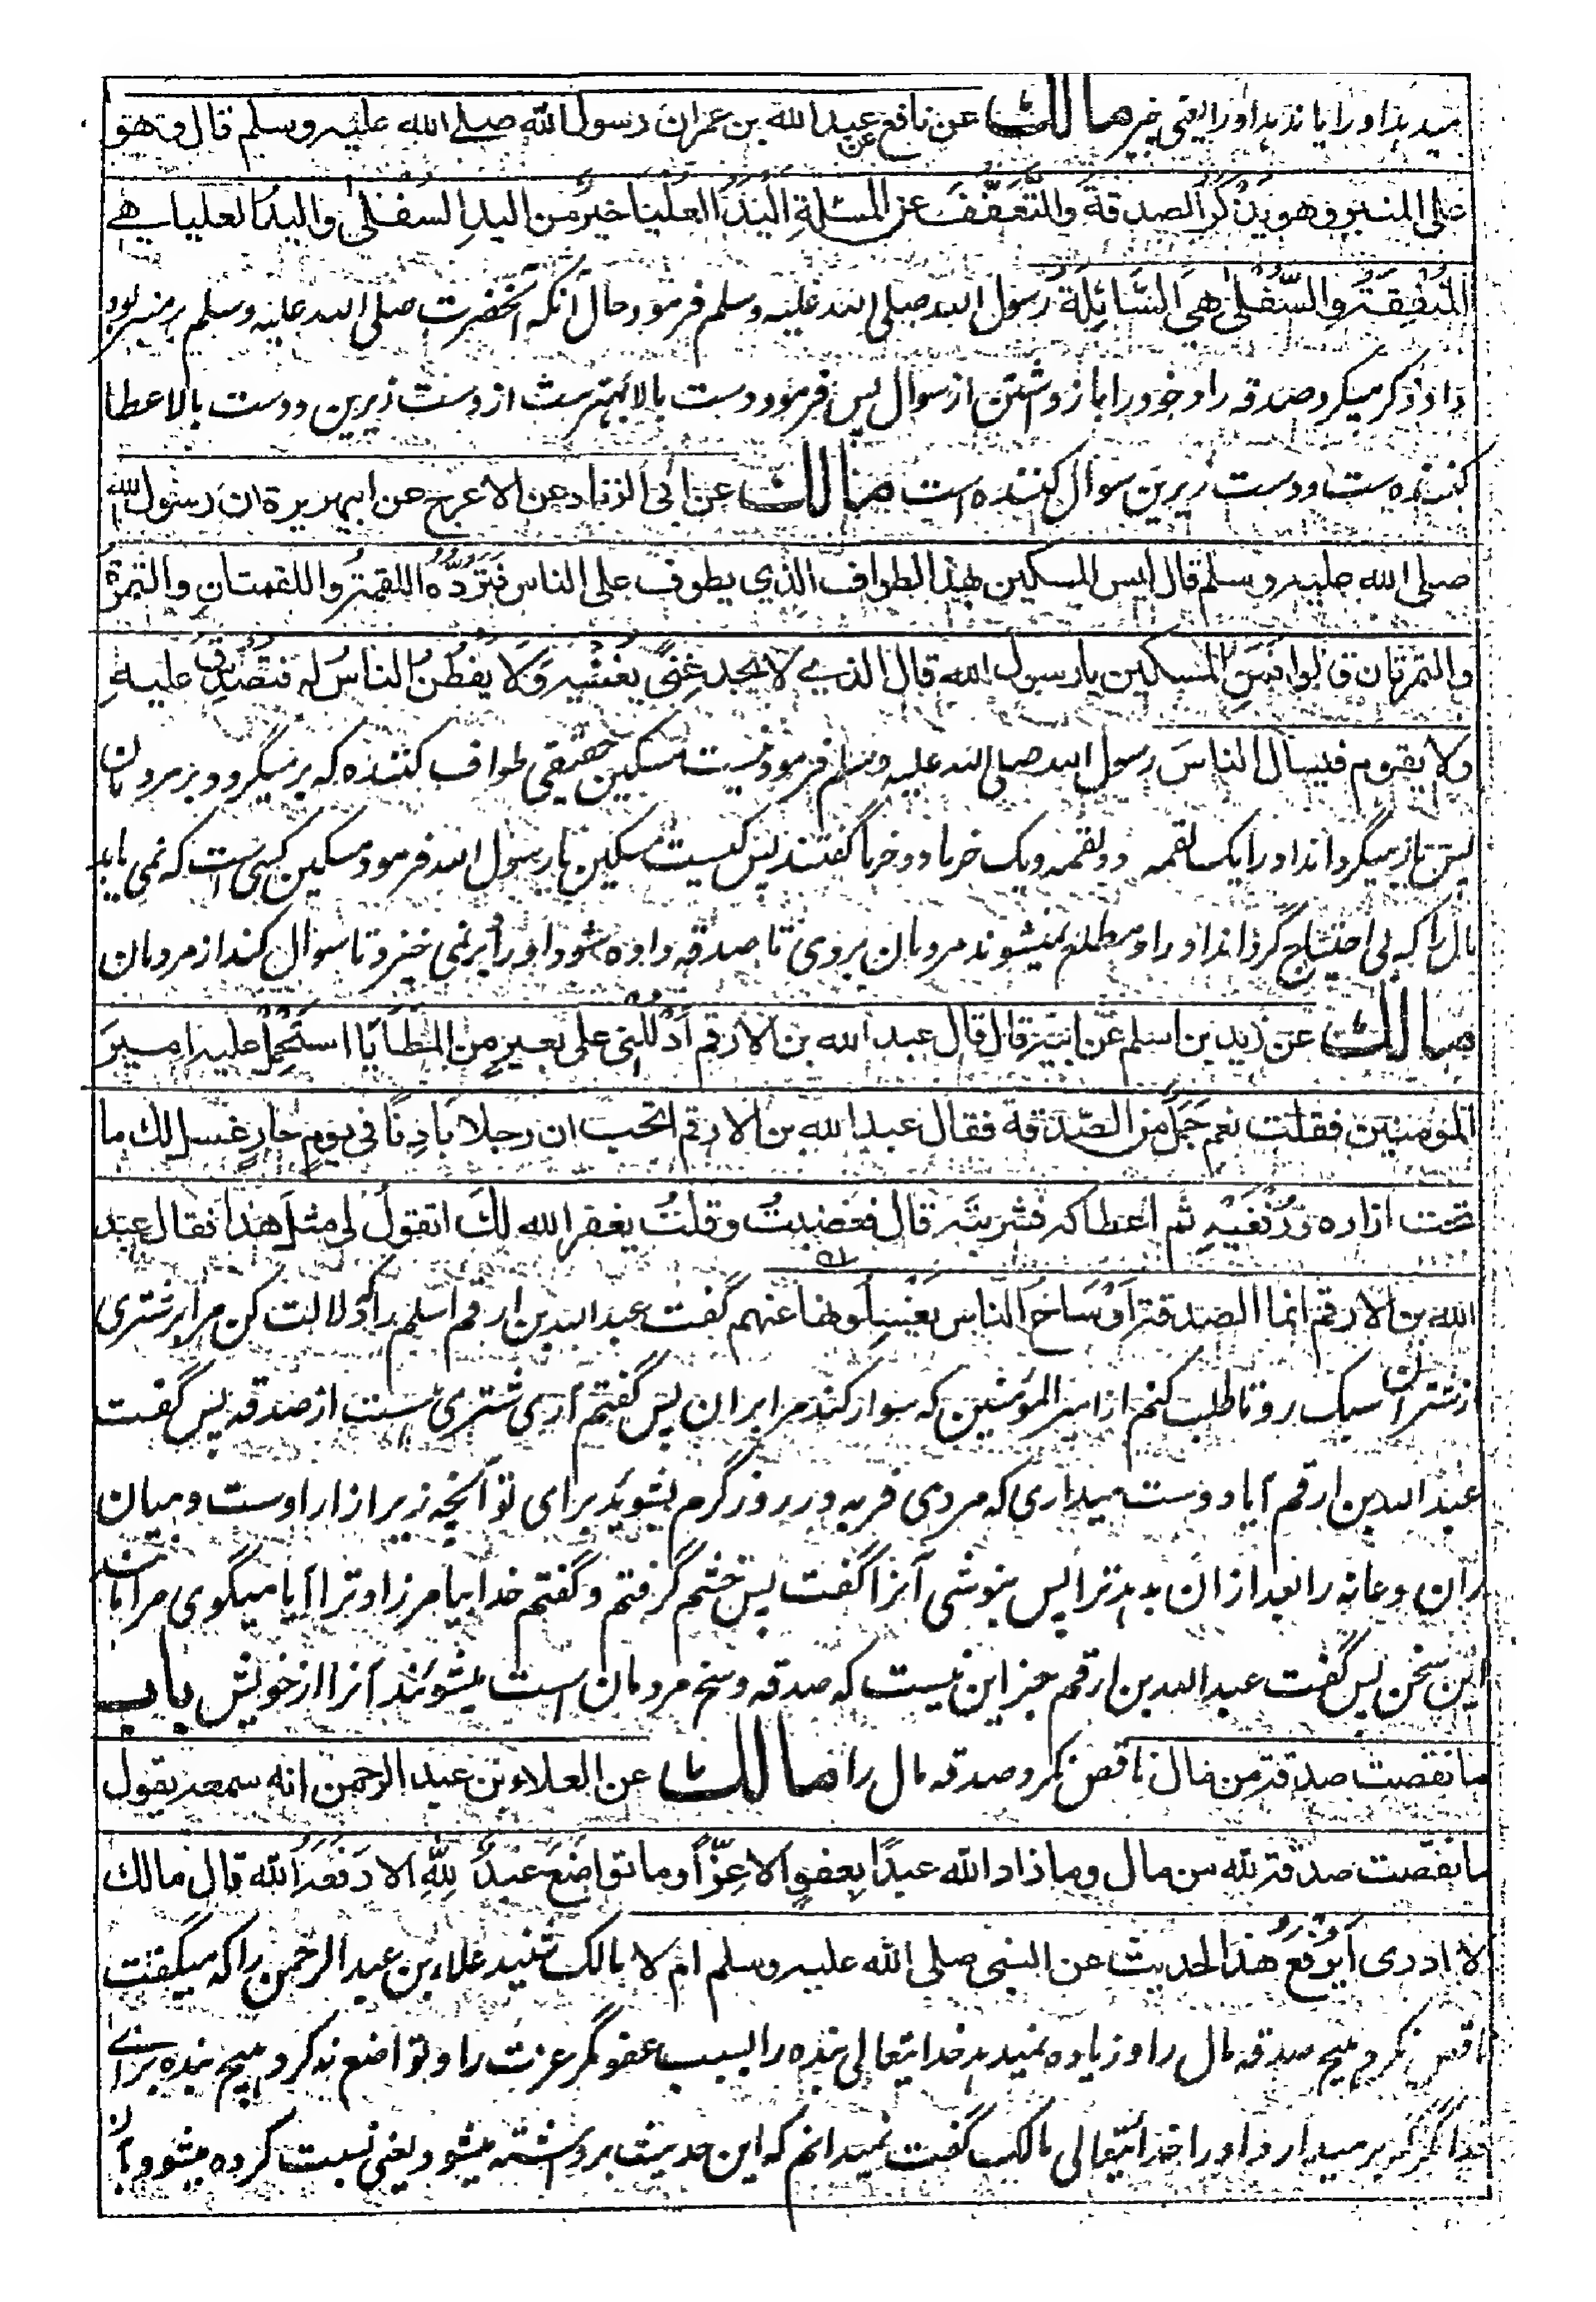 میدهد او را یا ندهد او را یعنی خیر مالك عن نافع عن عبد الله بن عمر ان رسول الله صلے الله علیه وسلم قال وهو
على المنبر وهو یذكر الصدقة والتعفف عن المسئلة الید العلیا خیر من الید السفلى والید العلیا هے
المنفقة والسفلى هی السائلة رسول الله صلی الله علیه وسلم فرمود حال آنکه آنحضرت صلی الله علیه وسلم بر منبر بود
و او ذکر میکرد صدقه را و خود را باز داشتن از سوال پس فرمود دست بالا بهترست از دست زیرین و دست بالا اعطا
کننده ست و دست زیرین سوال کننده است مالك عن ابی الزناد عن الاعرج عن ابیهریرة ان رسول الله
صلى الله علیه وسلم قال لیس المسكین بهذا الطواف الذی یطوف على الناس فترده اللقمة واللقمتان والتمرة
والتمرتان قالوا فمن المسكین یا رسول الله قال الذے لا یجد غنى یغنیه ولا یفطن الناس له فتصدق علیه
ولا یقوم فیسال الناس رسول الله صلی الله علیه وسلم فرمود نیست مسکین حقیقی طواف کننده که برمیگردد بر مردمان
پس باز میگرداند او را یک لقمه و دو لقمه و یک خرما و دو خرما گفتند پس کیست مسکین یا رسول الله فرمود مسکین کسی است که نمی یابد
مال را که بی احتیاج گرداند او را و مطلع نمیشوند مردمان بروی تا صدقه داده شود او را و بر نمی خیزد تا سوال کند از مردمان
مالك عن زید بن اسلم عن ابیه قال قال عبد الله بن الارقم ادللنی على بعیر من المطایا استحمل علیه امیر
المومنین فقلت نعم جمل من الصدقة فقال عبد الله بن الارقم اتحب ان رجلا بادنا فی یوم حار غسل لك ما
تحت ازاره ورفغیه ثم اعطاكه فشربته قال فغضبت وقلت یغفر الله لك اتقول لی مثل هذا فقال عبد
الله بن الارقم انما الصدقة اوساخ الناس یغسلونها عنهم گفت عبد الله بن ارقم اسلم را که دلالت کن مرا بر شتری
از شتران سبک رو تا طلب کنم از امیر المؤمنین که سوار کند مرا بران پس گفتم آری شتری هست از صدقه پس گفت
عبد الله بن ارقم آیا دوست میداری که مردی فربه در روز گرم بشوید برای تو آنچه زیر ازار اوست و میان
ران و عانه را بعد ازان بدهد ترا پس بنوشی آنرا گفت پس خشم گرفتم و گفتم خدا بیامرزاد ترا آیا میگوی مرا مانند
این سخن پس گفت عبد الله بن ارقم جز این نیست که صدقه وسخ مردمان است میشویند آنرا از خویش باب
ما نقصت صدقة من مال ناقص نکرد صدقه مال را مالك عن العلاء بن عبد الرحمن انه سمعه یقول
ما نقصت صدقة لله من مال وما زاد الله عبدا بعفو الا عزا وما تواضع عبد لله الا رفعه الله قال مالك
لا ادری ایرفع هذا الحدیث عن النبی صلى الله علیه وسلم ام لا مالک شنید علاء بن عبد الرحمن را که میگفت
ناقص نکرد هیچ صدقه مال را و زیاده نمیدهد خدایتعالی بنده را بسبب عفو مگر عزت را و تواضع نه کرد هیچ بنده برائے
خدا مگر که بر میدارد او را خدایتعالی مالک گفت نمیدانم که این حدیث برداشته میشود یعنی نسبت کرده میشود بآن